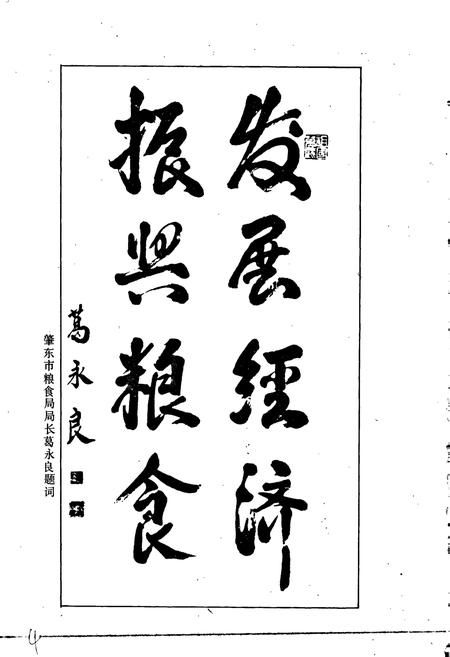 发展經济
振興粮食
葛永良
肇东市粮食局局长葛永良题词
4